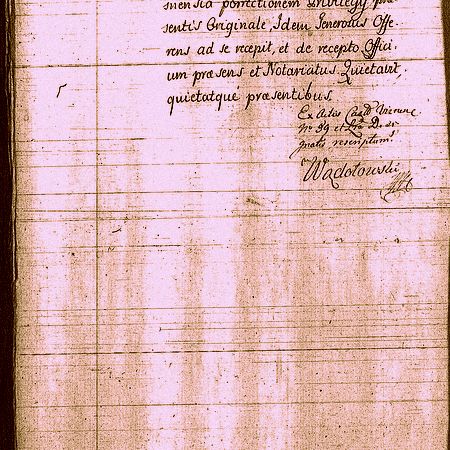 porrectionem Privilegy præ-
sentis Originale, Idem Generosus Offe-
rens ad se recepit, et de recepto Offici-
um præsens et Notariatus Quietavit,
quietatque præsentibus.
Ex Actis
No 59 et
rescriptum
Wądołowski